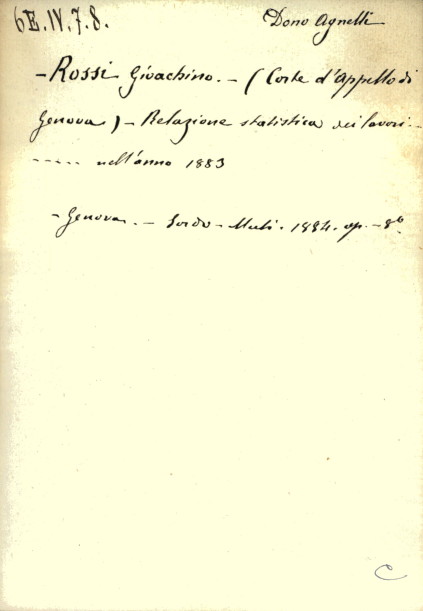 6E.IV.7.8.
Dono Agnelli
- Rossi Gioachino. - (Corte d'Appello di
Genova) - Relazione statistica dei lavori...
...... nell'anno 1883
- Genova. - Sordo - Muti. 1884. op. - 8º.
C